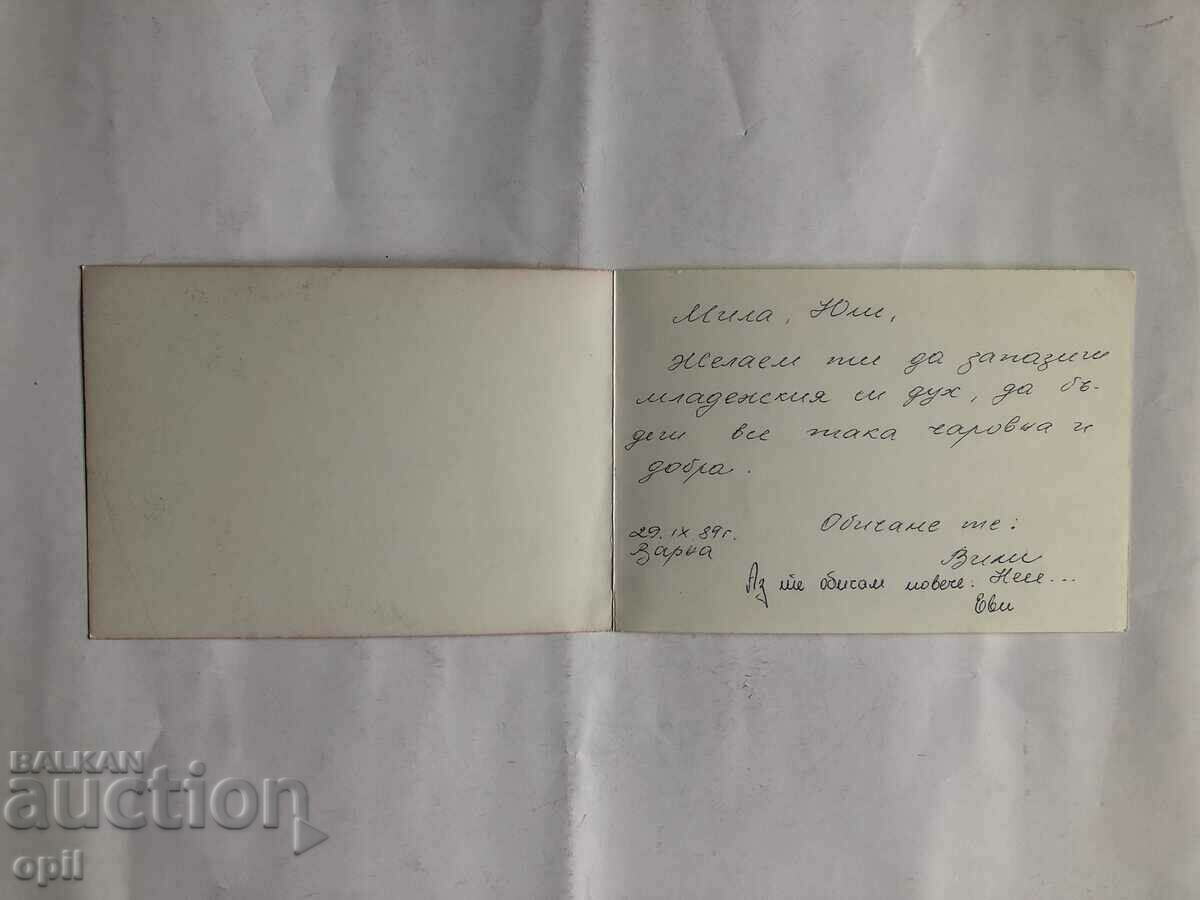 Мила, Юли,
Желаем ти да запазиш
младежкия си дух, да бъ-
деш все така чаровна и
добра.
Обичане те:
29. IX 89 г.
Варна
Вили
Аз те обичам повече.
Еви
BALKAN
auction
opil